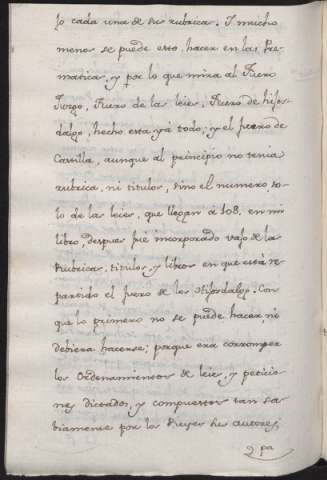 lo cada una de su rubrica. I mucho
menos se puede esto hacer en las Pre-
matica, y por lo que mira al Fuero
Juzgo, Fuero de las leies, Fuero de hijos-
dalgo, hecho esta ya todo; y el fuero de
Castilla, aunque al principio no tenia
rubrica, ni titulos, sino el numero so-
lo de las leies, que llegan a 108, en mi
libro, despues fue incorporado vajo de la
Rubrica, titulos, y libros en que està re-
partido el fuero de los Hijosdalgo. Con
que lo primero no se puede hacer, ni
debiera hacerse; porque era corromper
los Ordenamientos de leies, y peticio-
nes, dictados, y compuestos tan sa-
biamente por los Reyes sus autores,